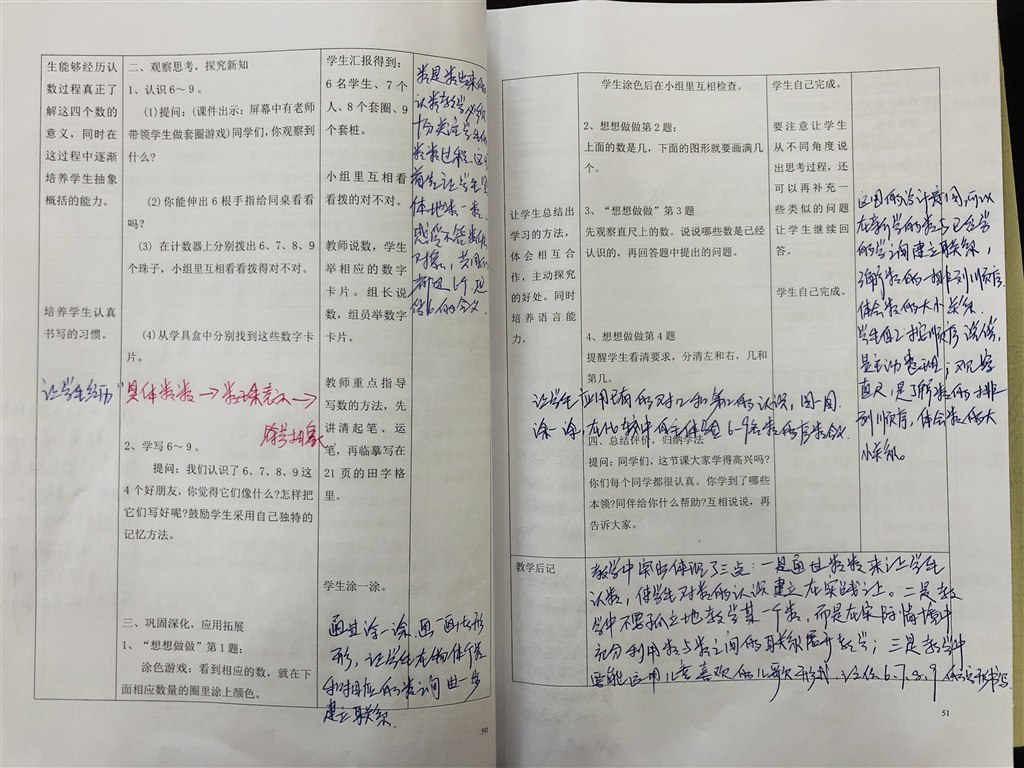 生能够经历认
数过程真正了
解这四个数的
意义，同时在
这过程中逐渐
培养学生抽象
概括的能力。
培养学生认真
书写的习惯。
让学生经历"
二、观察思考，探究新知
1、认识6～9。
(1)提问：(课件出示：屏幕中有老师
带领学生做套圈游戏)同学们，你观察到
什么?
(2)你能伸出6根手指给同桌看看
吗?
(3) 在计数器上分别拨出6、7、8、9
个珠子，小组里互相看看拨得对不对。
(4)从学具盒中分别找到这些数字卡
片。
具体数数→数字来表示→
符号抽象
2、学写6～9。
提问：我们认识了6、7、8、9这
4个好朋友，你觉得它们像什么?怎样把
它们写好呢?鼓励学生采用自己独特的
记忆方法。
三、巩固深化，应用拓展
1、“想想做做”第1题：
涂色游戏：看到相应的数，就在下
面相应数量的圈里涂上颜色。
学生汇报得到：
6名学生、7个
人、8个套圈、9
个套桩。
小组里互相看
看拨的对不对。
教师说数，学生
举相应的数字
卡片。组长说
数，组员举数字
卡片。
教师重点指导
写数的方法，先
讲清起笔、运
笔，再临摹写在
21页的田字格
里。
学生涂一涂。
通过涂一涂，画一画
形，让学生在物体个数
和对应的数之间进一步
建立联系。
数是数出来的
认数教学必须
十分关注学生的
数数过程。
50
让学生总结出
学习的方法，
体会相互合
作，主动探究
的好处。同时
培养语言能
力。
学生涂色后在小组里互相检查。
2、想想做做第2题：
上面的数是几，下面的图形就要画满几
个。
3、“想想做做”第3题
先观察直尺上的数。说说哪些数是已经
认识的，再回答题中提出的问题。
4、想想做做第4题
提醒学生看清要求，分清左和右，几和
第几。
让学生应用已有的对几和第几的认识，圈一圈
涂一涂，在比较中体验6-9各数的序数含义
四、总结评价，归纳学法
提问：同学们，这节课大家学得高兴吗?
你们每个同学都很认真。你学到了哪些
本领?同伴给你什么帮助?互相说说，再
告诉大家。
学生自己完成。
要注意让学生
从不同角度说
出思考过程，还
可以再补充一
些类似的问题
让学生继续回
答。
学生自己完成。
在新学的数与已经学
的数之间建立联系，
明确数的一排列顺序
体会数的大小关系
直尺，是了解数的排
列顺序，体会数的大
小关系。
教学后记
教学中突出体现了三点：一是通过数数来让学生
认数，使学生对数的认识建立在实践之上。二是教
学中不要孤立地教学某一个数，而是在实际情境中
充分利用数与数之间的联系展开教学；三是教学中
要能运用儿童喜欢的儿歌形式，记住6.7.8.9的书写
51